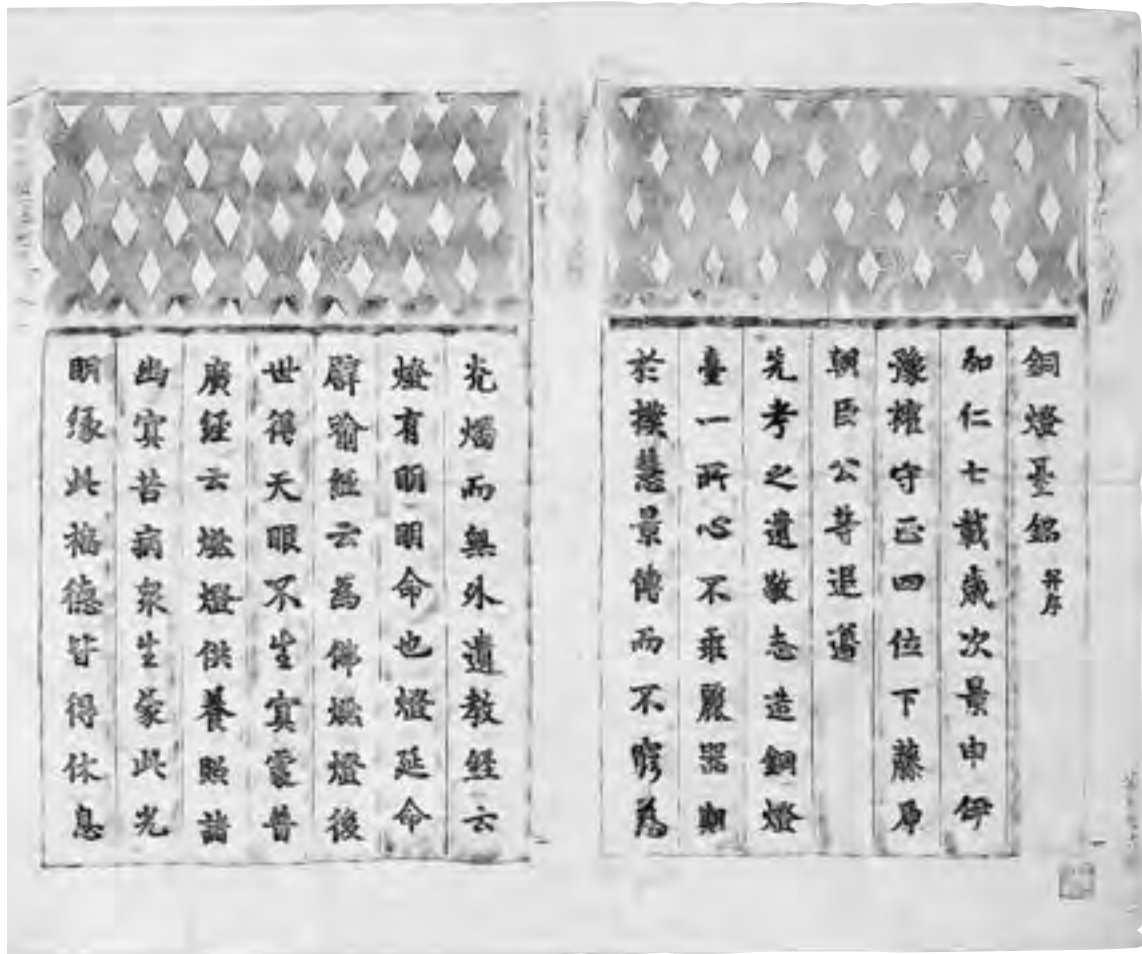 銅燈臺銘 并序
弘仁七載歲次景申伊
豫權守正四位下藤原
朝臣公等追遵
先考之遺敬志造銅燈
臺一所心不乖麗器期
於撲慧景傳而不窮慈
光燭而無外遺教經云
燈有明明命也燈延命
譬喻經云為佛燃燈後
世得天眼不生冥處普
廣經云燃燈供養照諸
幽冥苦病衆生蒙此光
明緣此福德皆得休息